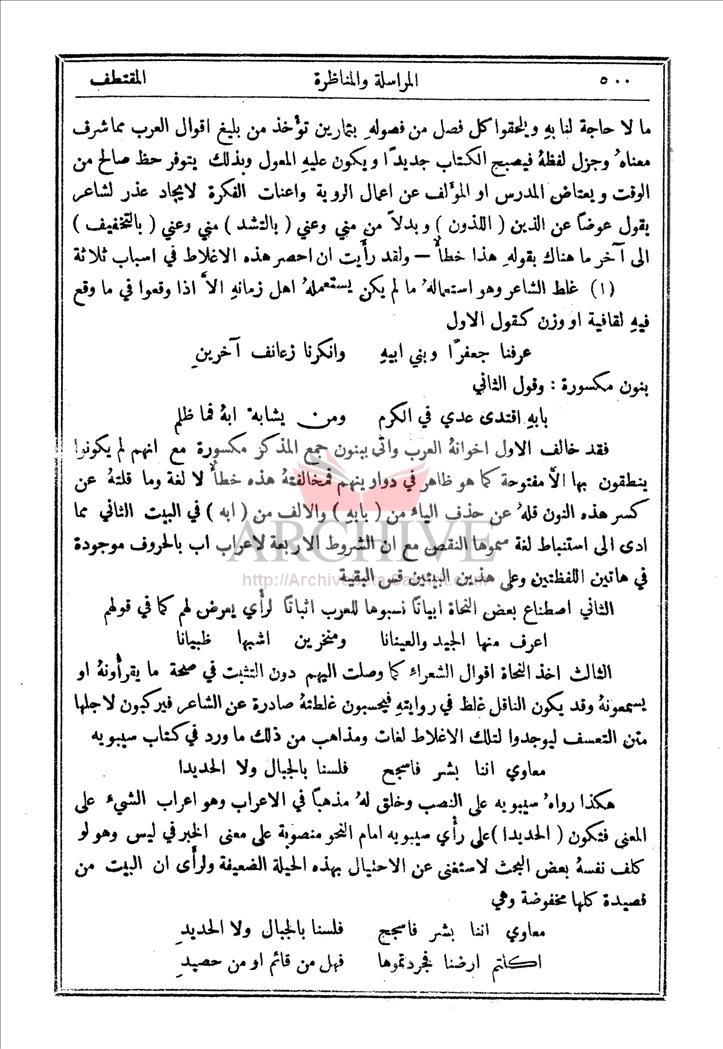 ٥٠٠ المراسلة والمناظرة المقتطف
ما لا حاجة لنا بهِ ويلحقوا كل فصل من فصولهِ بتمارين تؤخذ من بليغ اقوال العرب مما شرف
معناهُ وجزل لفظهُ فيصبح الكتاب جديدًا ويكون عليهِ المعول وبذلك يتوفر حظ صالح من
الوقت ويعتاض المدرس او المؤلف عن اعمال الروية واعنات الفكرة لايجاد عذر لشاعر
يقول عوضًا عن الذين ( اللذون ) وبدلاً من مني وعني ( بالتشد ) مني وعني ( بالتخفيف )
الى آخر ما هناك بقولهِ هذا خطأ — ولقد رأيت ان احصر هذه الاغلاط في اسباب ثلاثة
(١) غلط الشاعر وهو استعمالهُ ما لم يكن يستعملهُ اهل زمانهِ الاَّ اذا وقعوا في ما وقع
فيهِ لقافية او وزن كقول الاول
عرفنا جعفرًا وبني ابيهِ وانكرنا زعانف آخرينِ
بنون مكسورة : وقول الثاني
بابهِ اقتدى عدي في الكرم ومن يشابه ابهُ فما ظلم
فقد خالف الاول اخوانهُ العرب واتى بنون جمع المذكر مكسورة مع انهم لم يكونوا
ينطقون بها الاَّ مفتوحة كما هو ظاهر في دواوينهم فمخالفتهُ هذه خطأ لا لغة وما قلتهُ عن
كسر هذه النون قلهُ عن حذف الياء من ( بابهِ ) والالف من ( ابه ) في البيت الثاني مما
ادى الى استنباط لغة سموها النقص مع ان الشروط الاربعة لاعراب اب بالحروف موجودة
في هاتين اللفظتين وعلى هذين البيتين قس البقية
الثاني اصطناع بعض النحاة ابياتًا نسبوها للعرب اثباتًا لرأي يعرض لهم كما في قولهم
اعرف منها الجيد والعينانا ومنخرين اشبها ظبيانا
الثالث اخذ النحاة اقوال الشعراء كما وصلت اليهم دون التثبت في صحة ما يقرأونهُ او
يسمعونهُ وقد يكون الناقل غلط في روايتهِ فيحسبون غلطتهُ صادرة عن الشاعر فيركبون لاجلها
متن التعسف ليوجدوا لتلك الاغلاط لغات ومذاهب من ذلك ما ورد في كتاب سيبويه
معاوي اننا بشر فاسجح فلسنا بالجبال ولا الحديدا
هكذا رواهُ سيبويه على النصب وخلق لهُ مذهبًا في الاعراب وهو اعراب الشيء على
المعنى فتكون ( الحديدا ) على رأي سيبويه امام النحو منصوبة على معنى الخبر في ليس وهو لو
كلف نفسهُ بعض البحث لاستغنى عن الاحتيال بهذه الحيلة الضعيفة ولرأى ان البيت من
قصيدة كلها مخفوضة وهي
معاوي اننا بشر فاسجح فلسنا بالجبال ولا الحديدِ
اكلتم ارضنا فجردتموها فهل من قائم او من حصيدِ
ARCHIVE